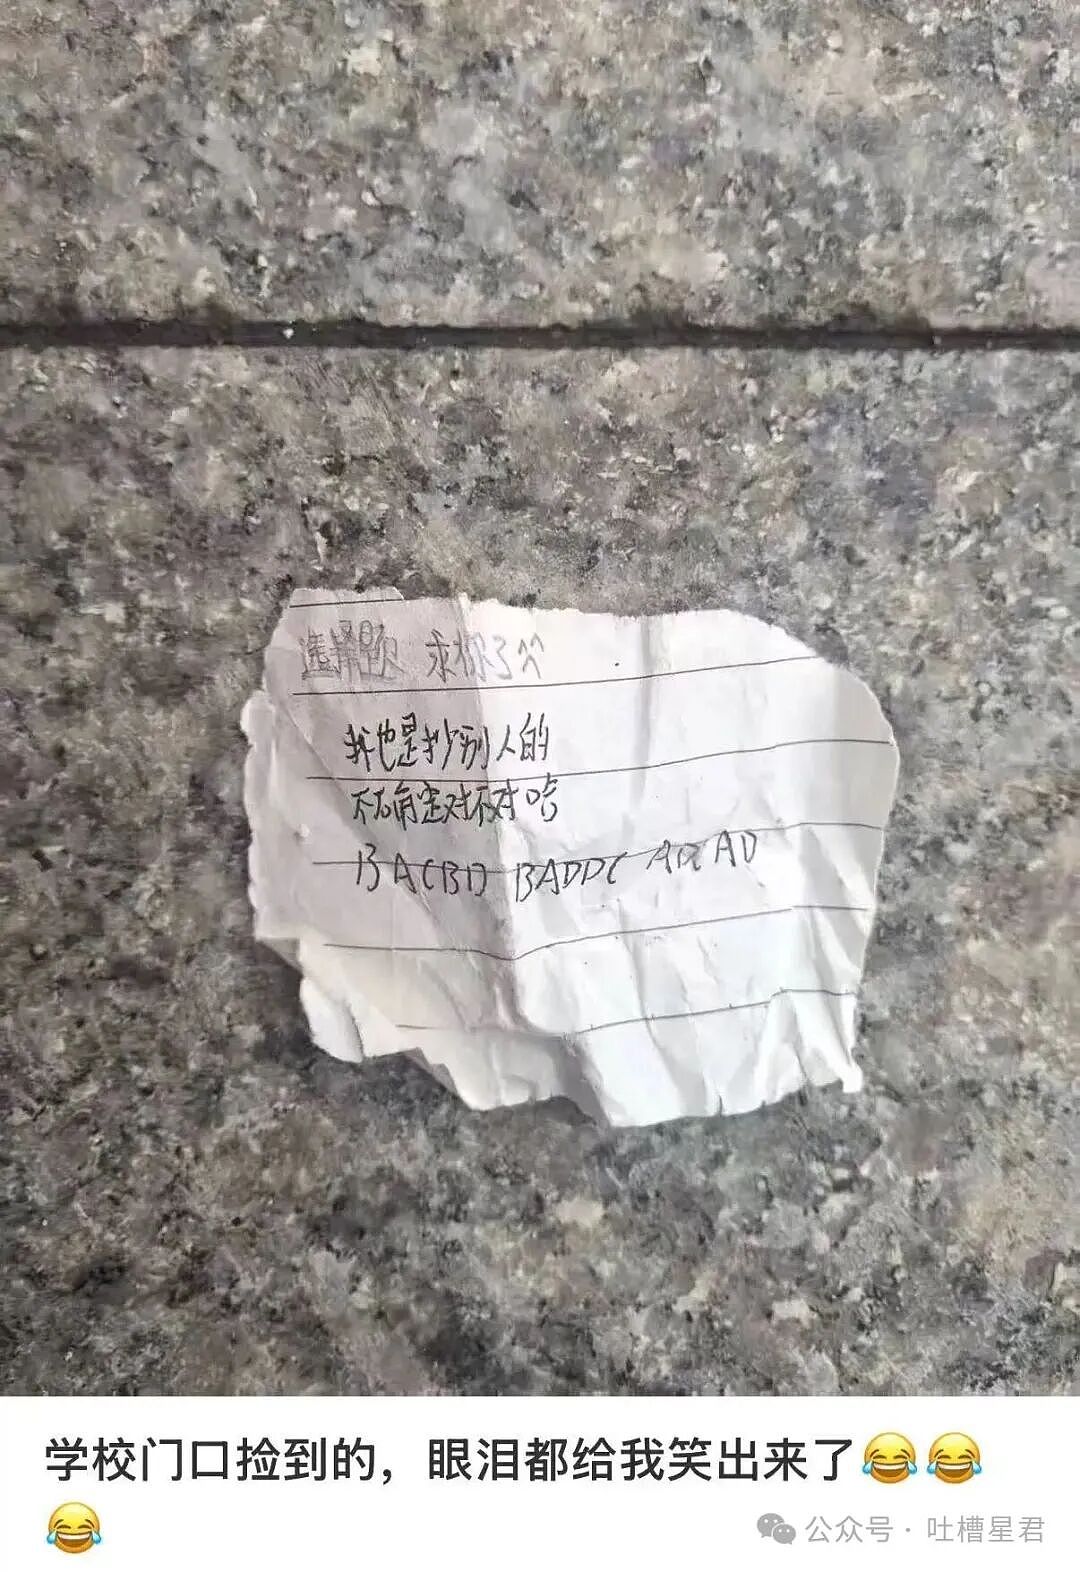 选择题 求你了^^
我也是抄别人的
不石角定对不对哈
BACBD BADDC ADCAD
学校门口捡到的，眼泪都给我笑出来了😂😂
😂
公众号·吐槽星君